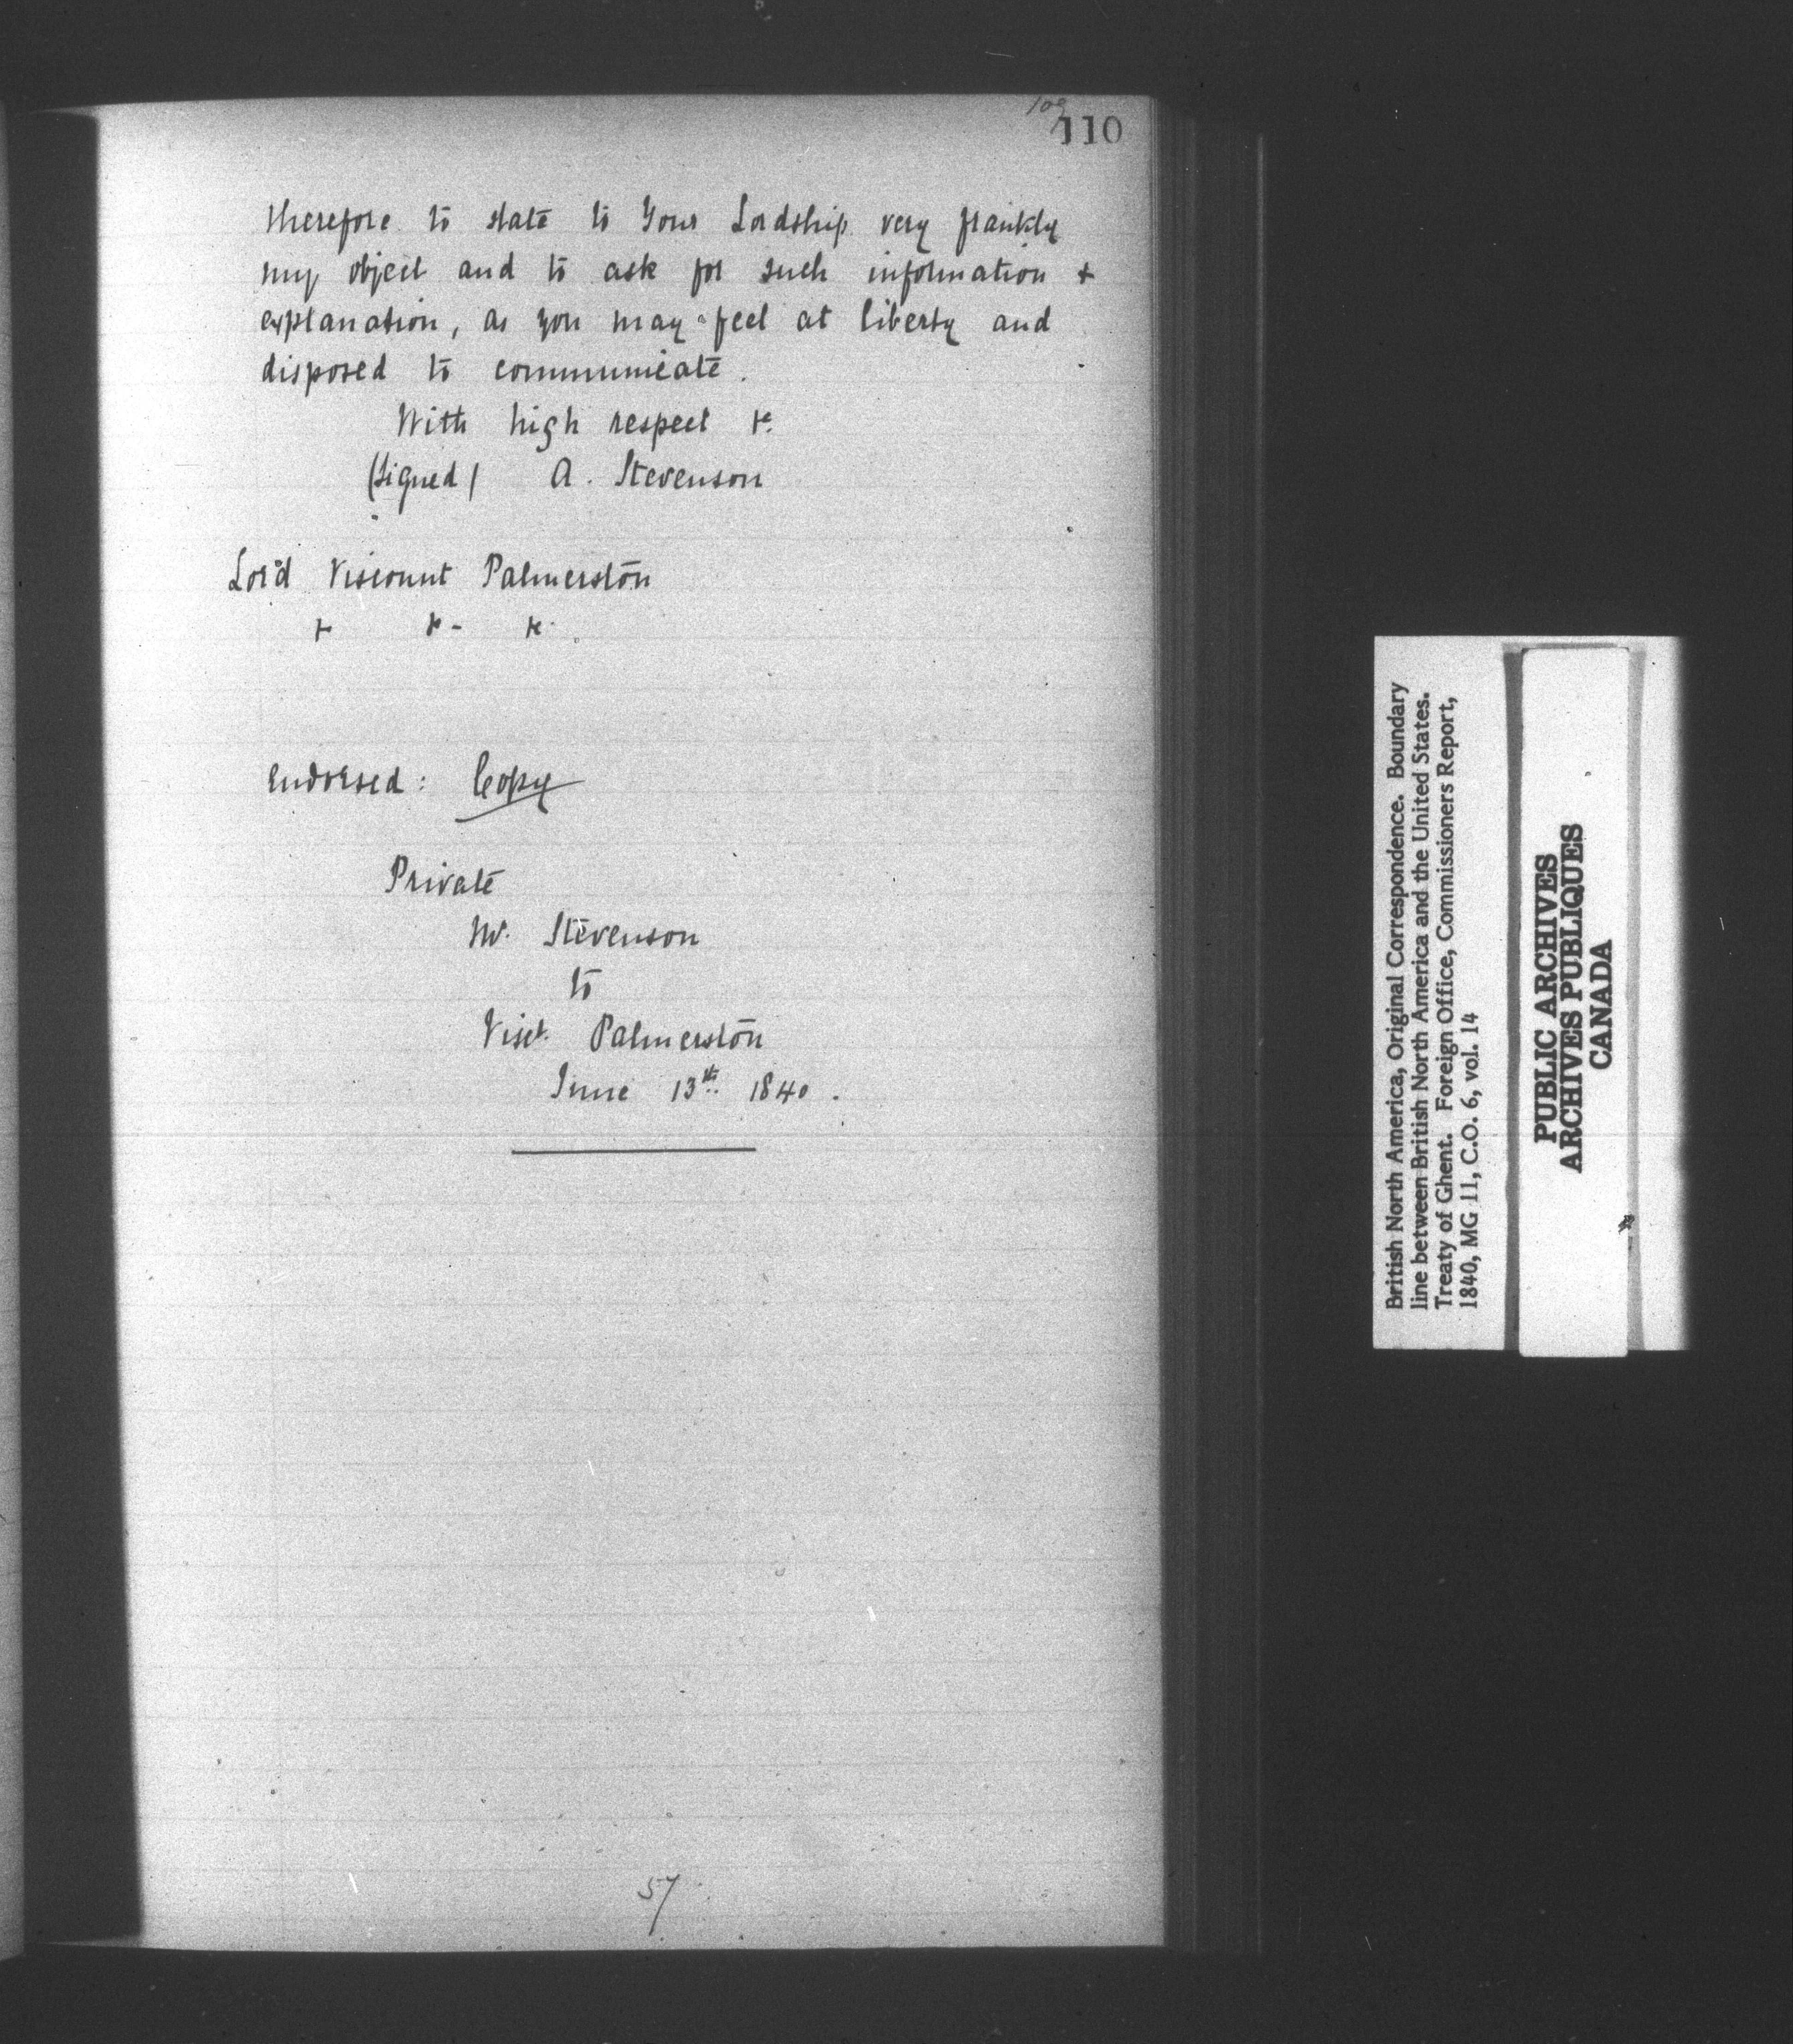 109
110
therefore to state to Your Lordship very frankly
my object and to ask for such information &
explanation, as you may feel at liberty and
disposed to communicate.
With high respect &c.
(signed) A. Stevenson
Lord Viscount Palmerston
& &c &c.
Endorsed: Copy
Private
Mr. Stevenson
to
Visct. Palmerston
June 13th 1840.
57
British North America, Original Correspondence. Boundary
line between British North America and the United States.
Treaty of Ghent. Foreign Office, Commissioners Report,
1840, MG 11, C.O. 6, vol. 14
PUBLIC ARCHIVES
ARCHIVES PUBLIQUES
CANADA